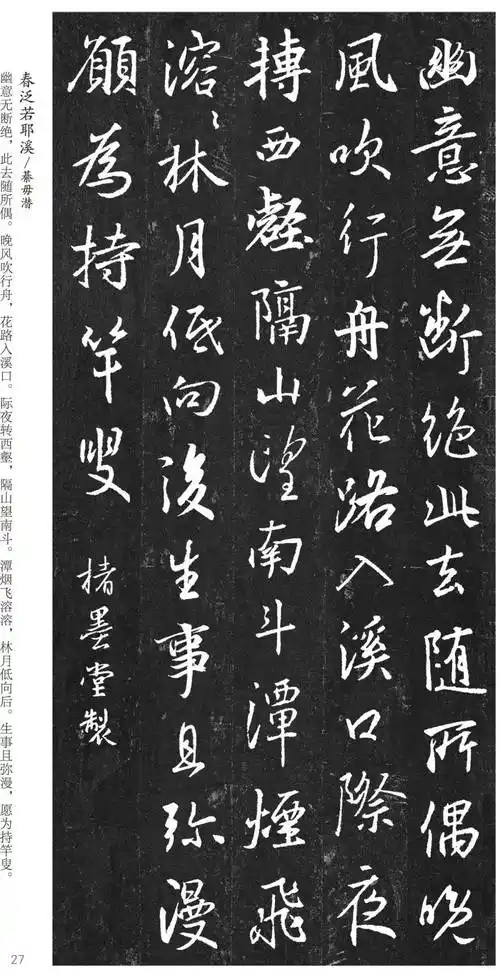 幽意無断絶此去随所偶晚
風吹行舟花路入溪口際夜
轉西壑隔山望南斗潭煙飛
溶〻林月低向後生事且弥漫
願為持竿叟
楮墨堂製
春泛若耶溪/綦毋潜
幽意无断绝，此去随所偶。晚风吹行舟，花路入溪口。际夜转西壑，隔山望南斗。潭烟飞溶溶，林月低向后。生事且弥漫，愿为持竿叟。
27